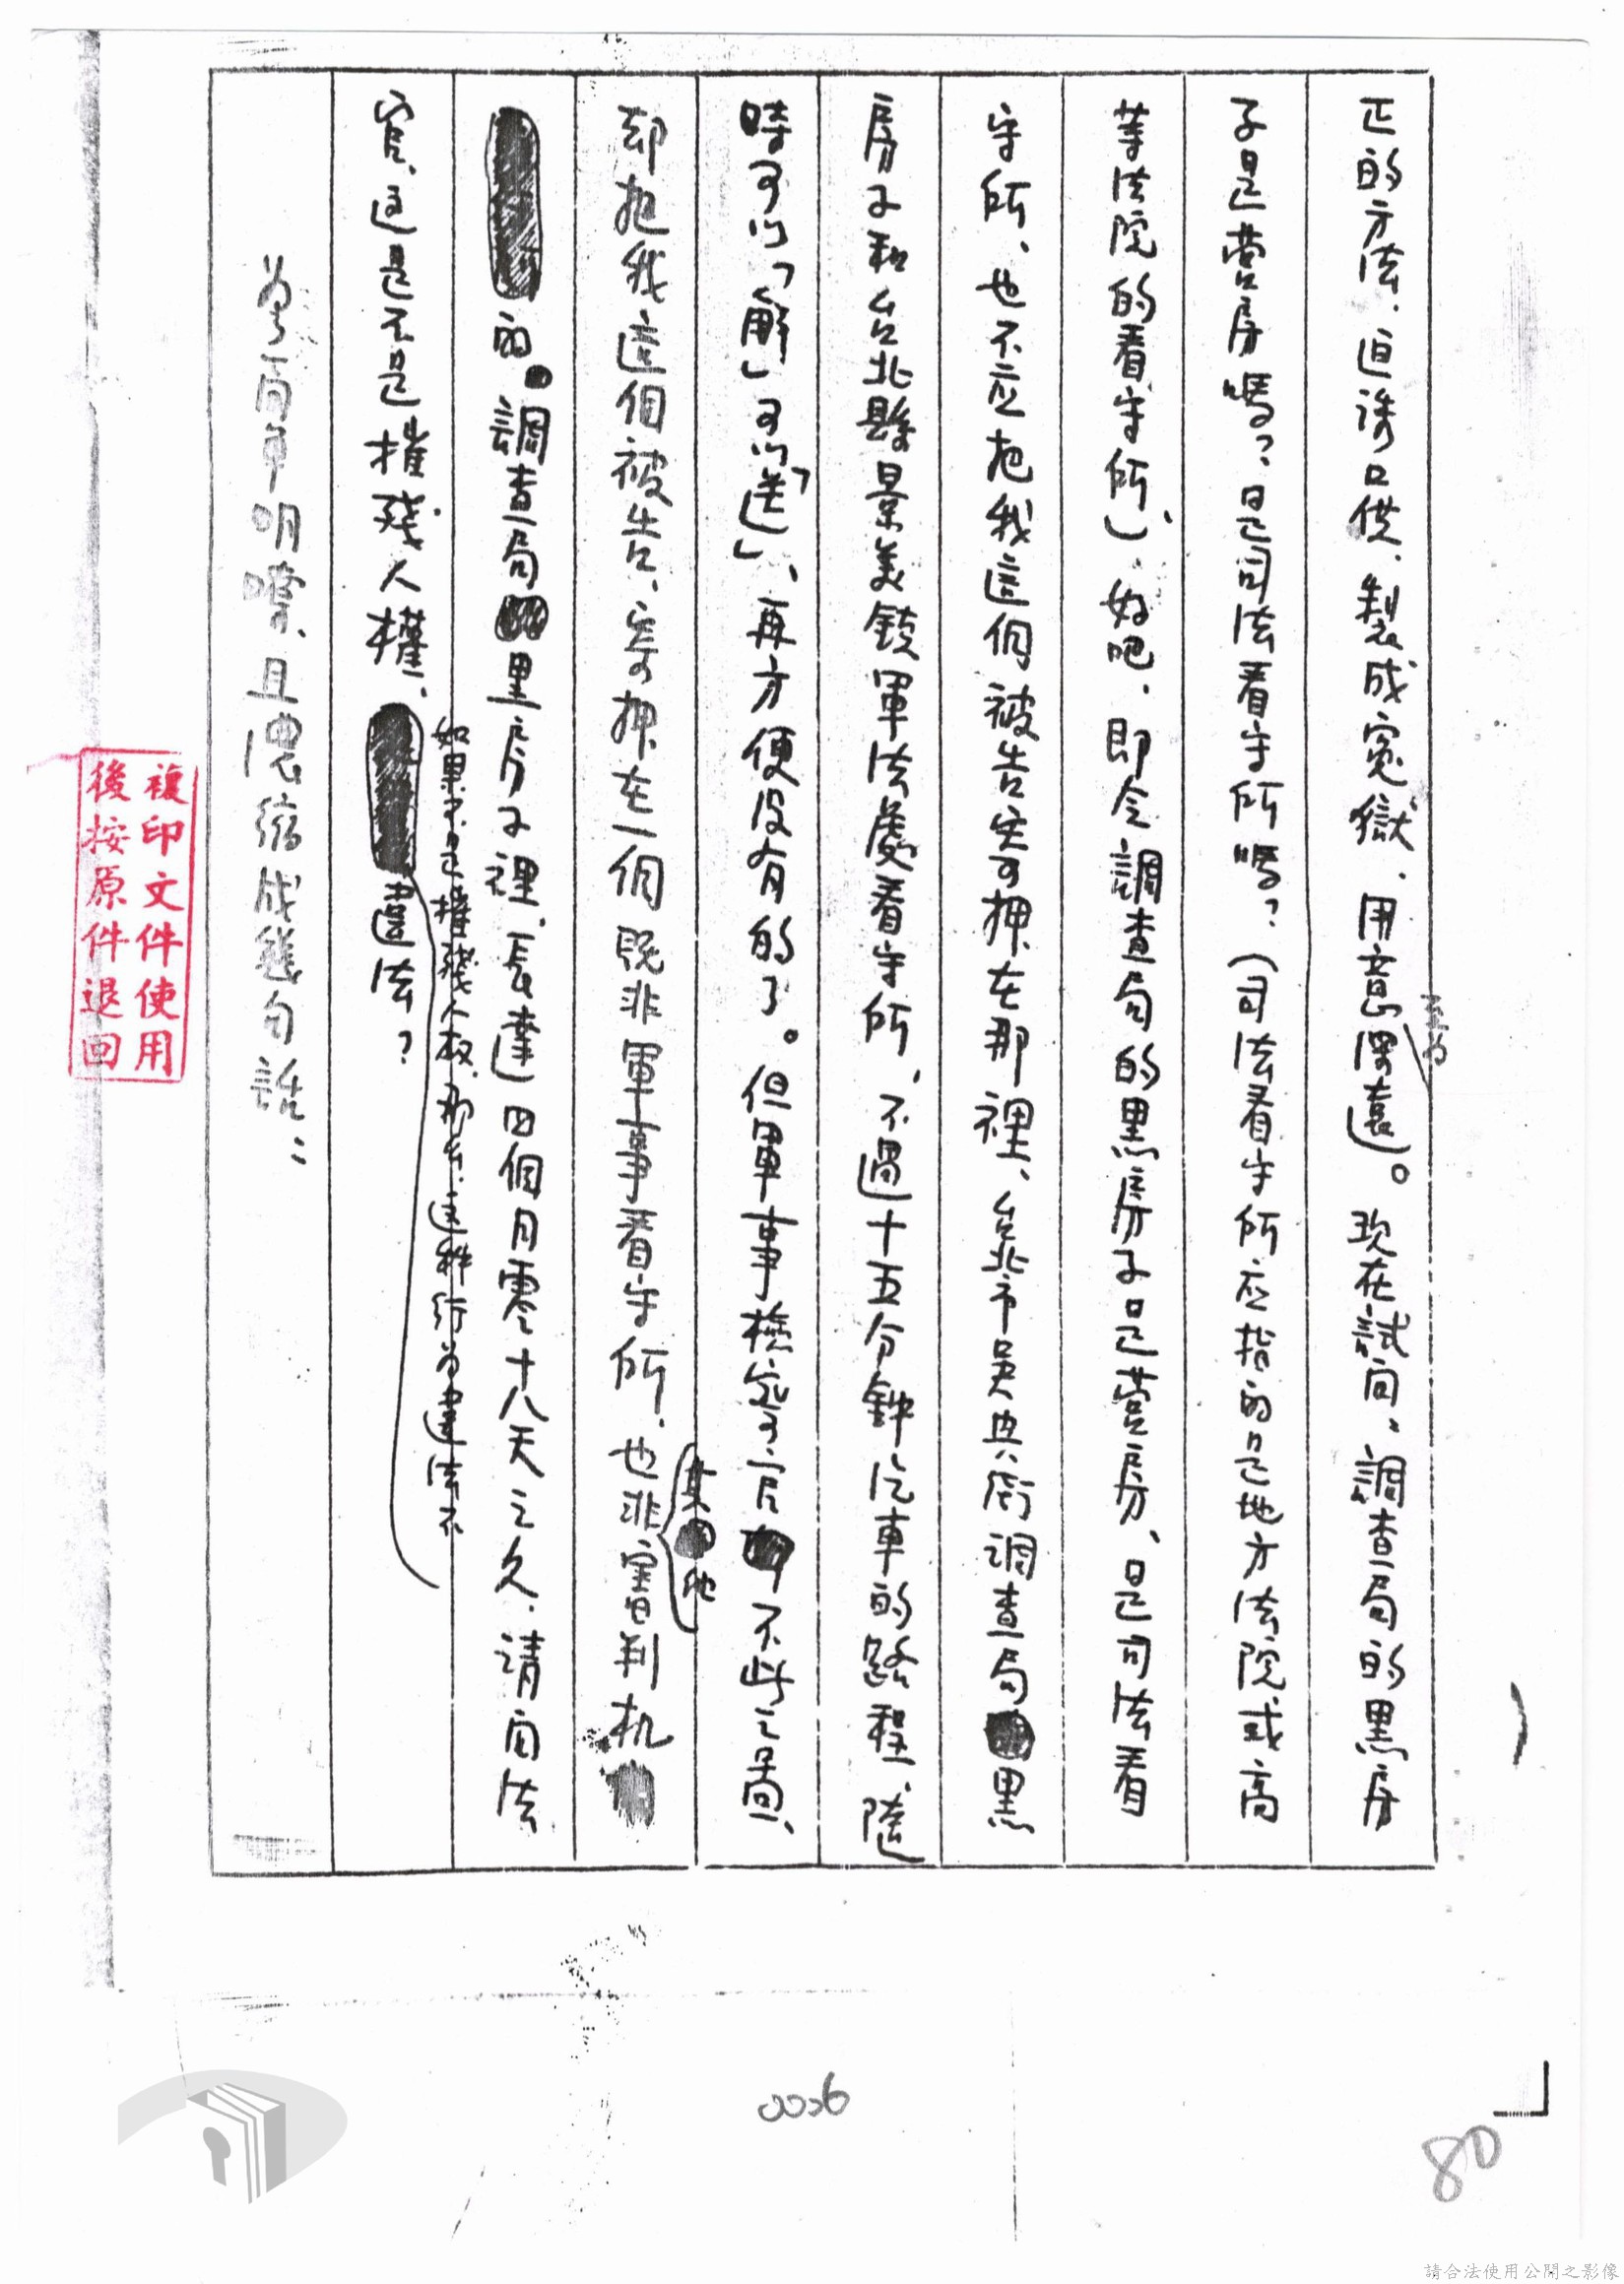 正的方法，迫誘口供，製成寃獄，用意深遠。現在試问：調查局的黑房
至为
子是营房嗎？是司法看守所嗎？（司法看守所应指的是地方法院或高
等法院的看守所），好吧，即令調查局的黑房子是营房、是司法看
守所，也不应把我這個被告寄押在那裡，台北市吳兴街调查局黑
房子和台北縣景美鎮軍法處看守所，不過十五分鐘汽車的路程，隨
時可以「解」可以「送」，再方便没有的了。但軍事檢察官不此之圖，
却把我這個被告，寄押在一個既非軍事看守所，也非審判机
其他
的。調查局里房子裡，長達四個月零十八天之久，请问法
如果不是摧殘人权，那么，这种行为違法不
官，这是不是摧殘人權、違法？
為简单明嘹，且濃縮成幾句話：
複印文件使用
後按原件退回
0026
80
請合法使用公開之影像